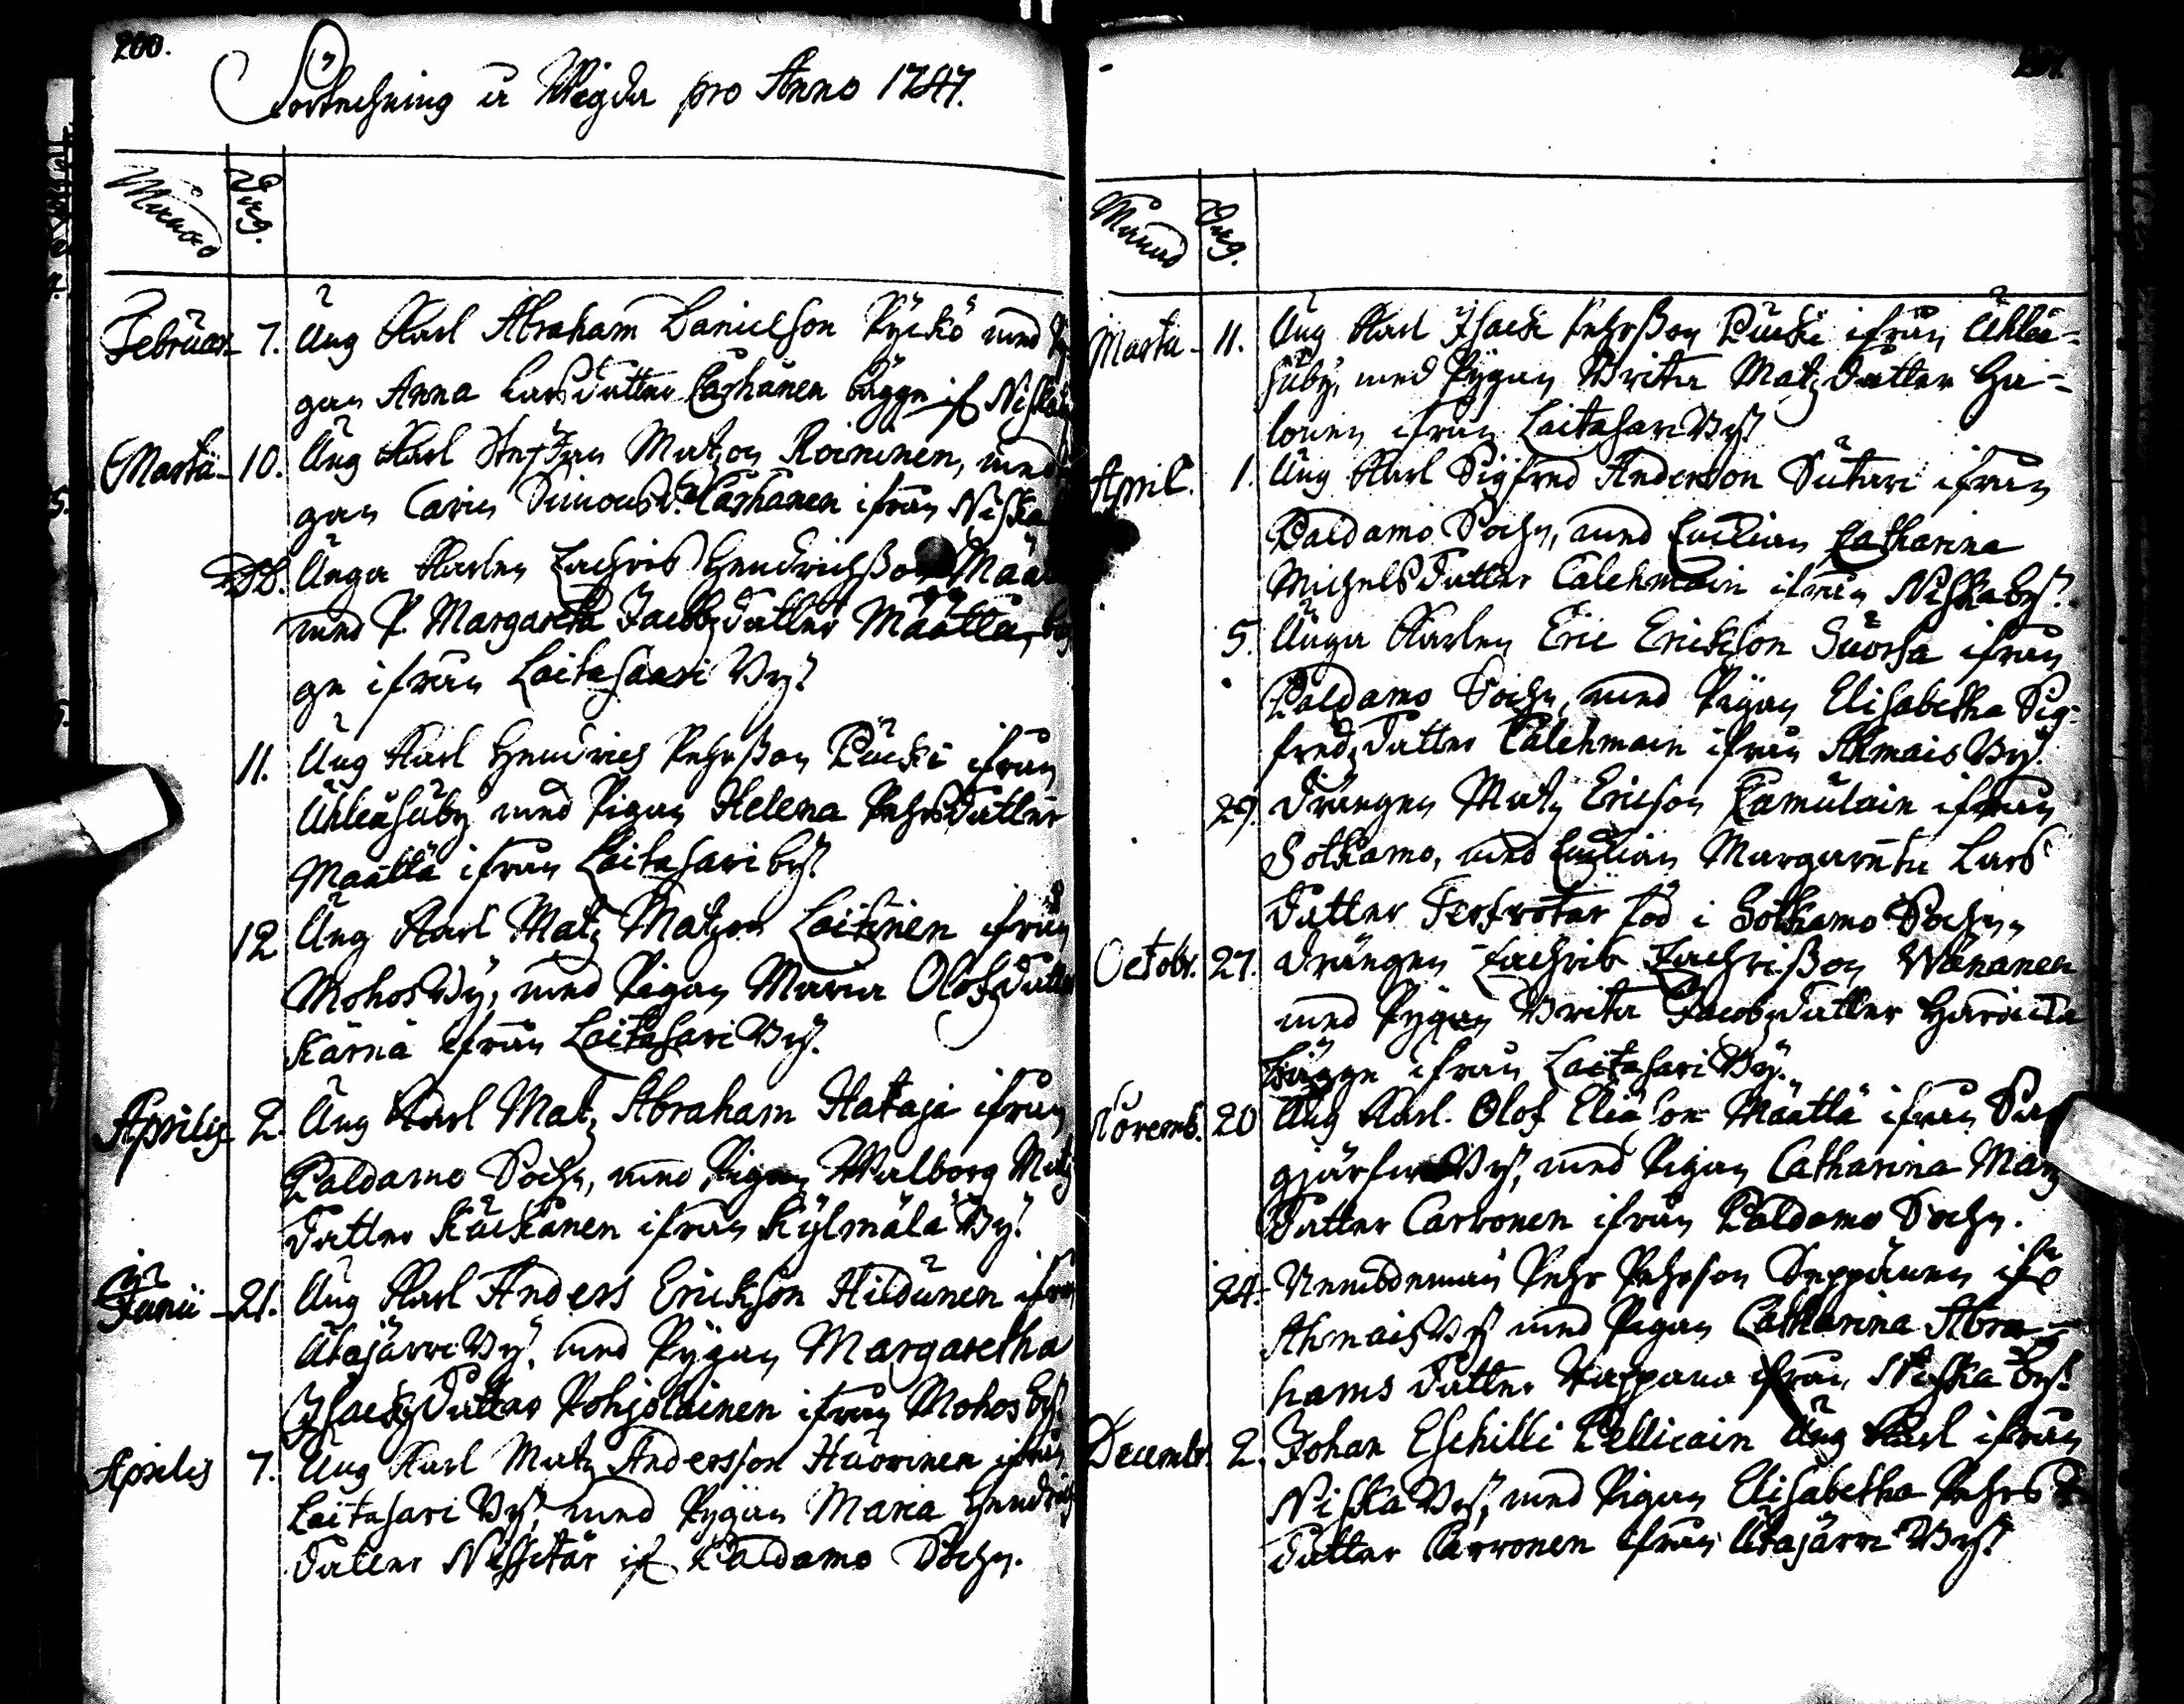 200.
Förtekning å Wigda pro Anno 1747.
Månad Dag.
Februar. 7. Ung Karl Abraham Danielson Pyckö med Py
gan Anna Larsdutter Carhanen bägge if Niska
Martii 10. Ung Karl Staffan Matzon Roininen, med
gan Carin Simonsd. Carhanen ifrån Niska
D. Unga Karlen Zachris Hendrichsson Määt
med P. Margareta Jacobzdutter Määttä, bäg
ge ifrån Laitasaari By.
11. Ung Karl Hendrich Pehrsson Pucki ifrån
Uhleåsuby med Pigan Helena Pehrsdutter
Määttä ifrån Laitasari by.
12 Ung Karl Matz Matzon Laitinen ifrån
Mohos By, med Pigan Maria Olofzdutter
Kärnä ifrån Laitasari By.
Aprilis 2. Ung Karl Matz Abraham Hataja ifrån
Paldamo Sochn, med Pigan Walborg Matz
dutter Kückanen ifrån Kylmälä By.
Junii 21. Ung Karl Anders Erickson Hildunen ifrån
Utajärvi By, med Pygan Margaretha
Isackzdutter Pohjolainen ifrån Mohos by.
Aprilis 7. Ung Karl Matz Andersson Huovinen ifrån
Laitasari By, med Pygan Maria Hendrich
dutter Nissitär if Paldamo Sochn.
201.
Månad Dag.
Martii 11. Ung Karl Isack Pehrsson Pucki ifrån Uhleå-
suby, med Pygan Brita Matzdutter Ha-
lonen ifrån Laitasari By.
April. 1. Ung Karl Sigfred Anderson Sutari ifrån
Paldamo Sochn, med Enckian Catharina
Michelsdutter Calehmain ifrån Niska by.
5. Unga Karlen Eric Erickson Suorsa ifrån
Paldamo Sochn, med Pigan Elisabetha Sig-
fredzdutter Calehmain ifrån Ahmais By.
29. Drängen Matz Ericson Kamulain ifrån
Sotkamo, med Enckian Margareta Lars
dutter föd i Sotkamo Sochn
Octobr. 27. Drängen Zachris Zachrisson Wänanen
med Pygan Brita Jacobzdutter
bägge ifrån Laitasari By.
Novemb. 20 Ung Karl Olof Eliäson Määttä ifrån
By, med Pigan Catharina Matz
dutter Carvonen ifrån Paldamo Sochn.
24. Nemdeman Pehr Pehrson Seppänen ifr
Ahmais By med Pigan Catharina Abra-
hams dutter ifrån Niska by.
Decembr. 2. Johan Eschilli Pellicain Ung Karl ifrån
Niska By, med Pigan Elisabetha Pehrs
dutter Carvonen ifrån Utajärvi By.